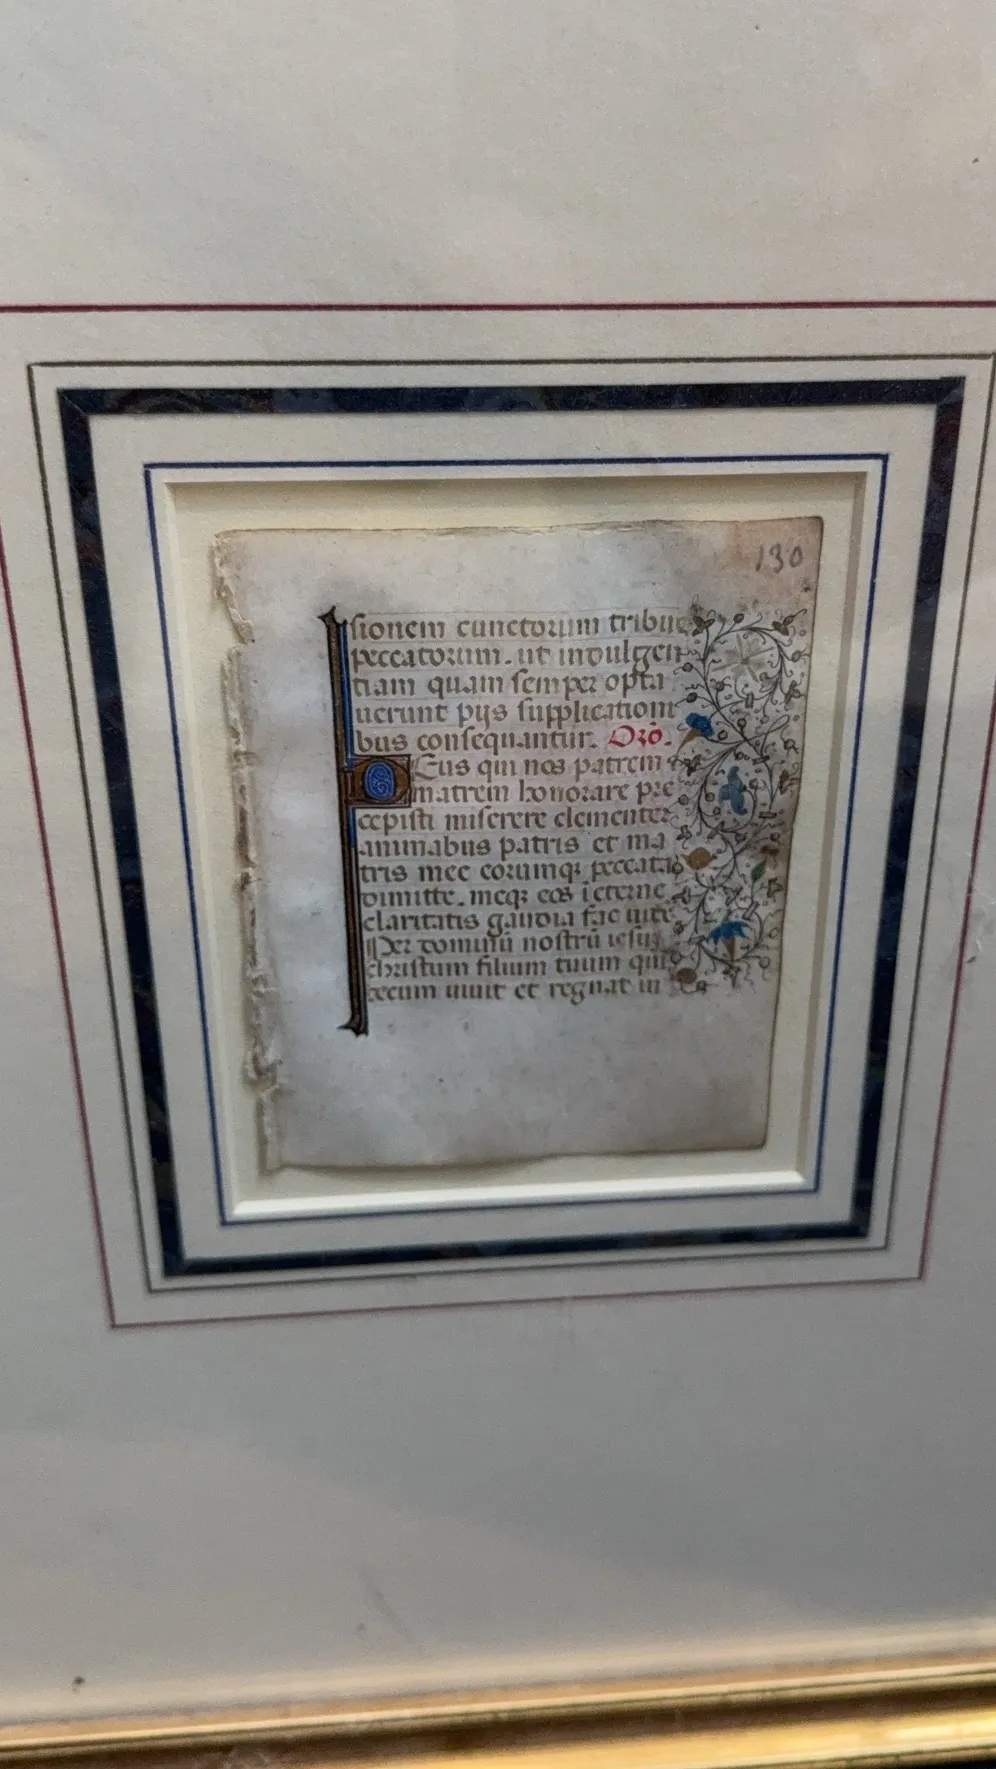 130
sionem cunctorum tribue
peccatorum. ut indulgen
tiam quam semper opta
uerunt pijs supplicationi
bus consequantur. Orõ.
Deus qui nos patrem
matrem honorare pre
cepisti miserere clementer
animabus patris et ma
tris mee eorumq; peccata
dimitte. meq; eos ieterne
claritatis gaudia fac uite
Per dominũ nostrũ iesũ
christum filium tuum qui
tecum uiuit et regnat in